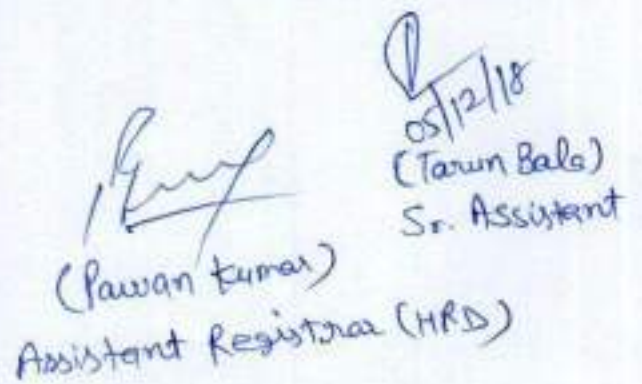 05/12/18
(Tarun Bala)
Sr. Assistant
(Pawan Kumar)
Assistant Registrar (HRD)